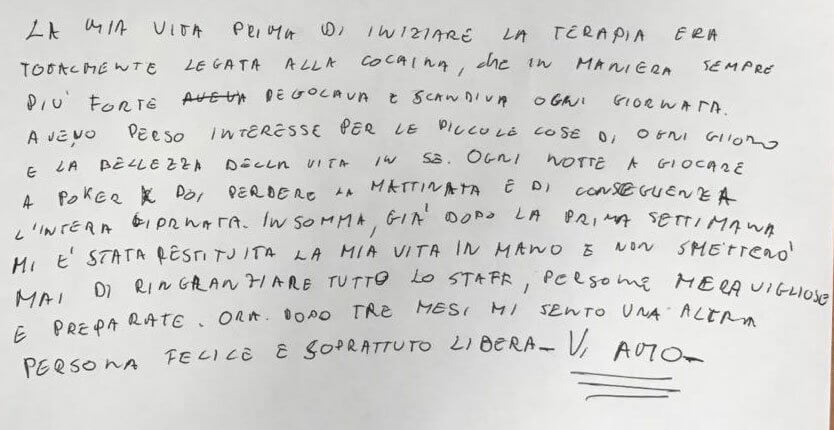 LA MIA VITA PRIMA DI INIZIARE LA TERAPIA ERA
TOTALMENTE LEGATA ALLA COCAINA, che IN MANIERA SEMPRE
PIU' FORTE AVEVA REGOLAVA E SCANDIVA OGNI GIORNATA.
AVEVO PERSO INTERESSE PER LE PICCOLE COSE DI OGNI GIORNO
E LA BELLEZZA DELLA VITA IN SE. OGNI NOTTE A GIOCARE
A POKER POI PERDERE LA MATTINATA E DI CONSEGUENZA
L'INTERA GIORNATA. INSOMMA, GIA' DOPO LA PRIMA SETTIMANA
MI E' STATA RESTITUITA LA MIA VITA IN MANO E NON SMETTERO'
MAI DI RINGRANZIARE TUTTO LO STAFF, PERSONE MERAVIGLIOSE
E PREPARATE. ORA. DOPO TRE MESI MI SENTO UNA ALTRA
PERSONA FELICE E SOPRATTUTO LIBERA- VI AMO-